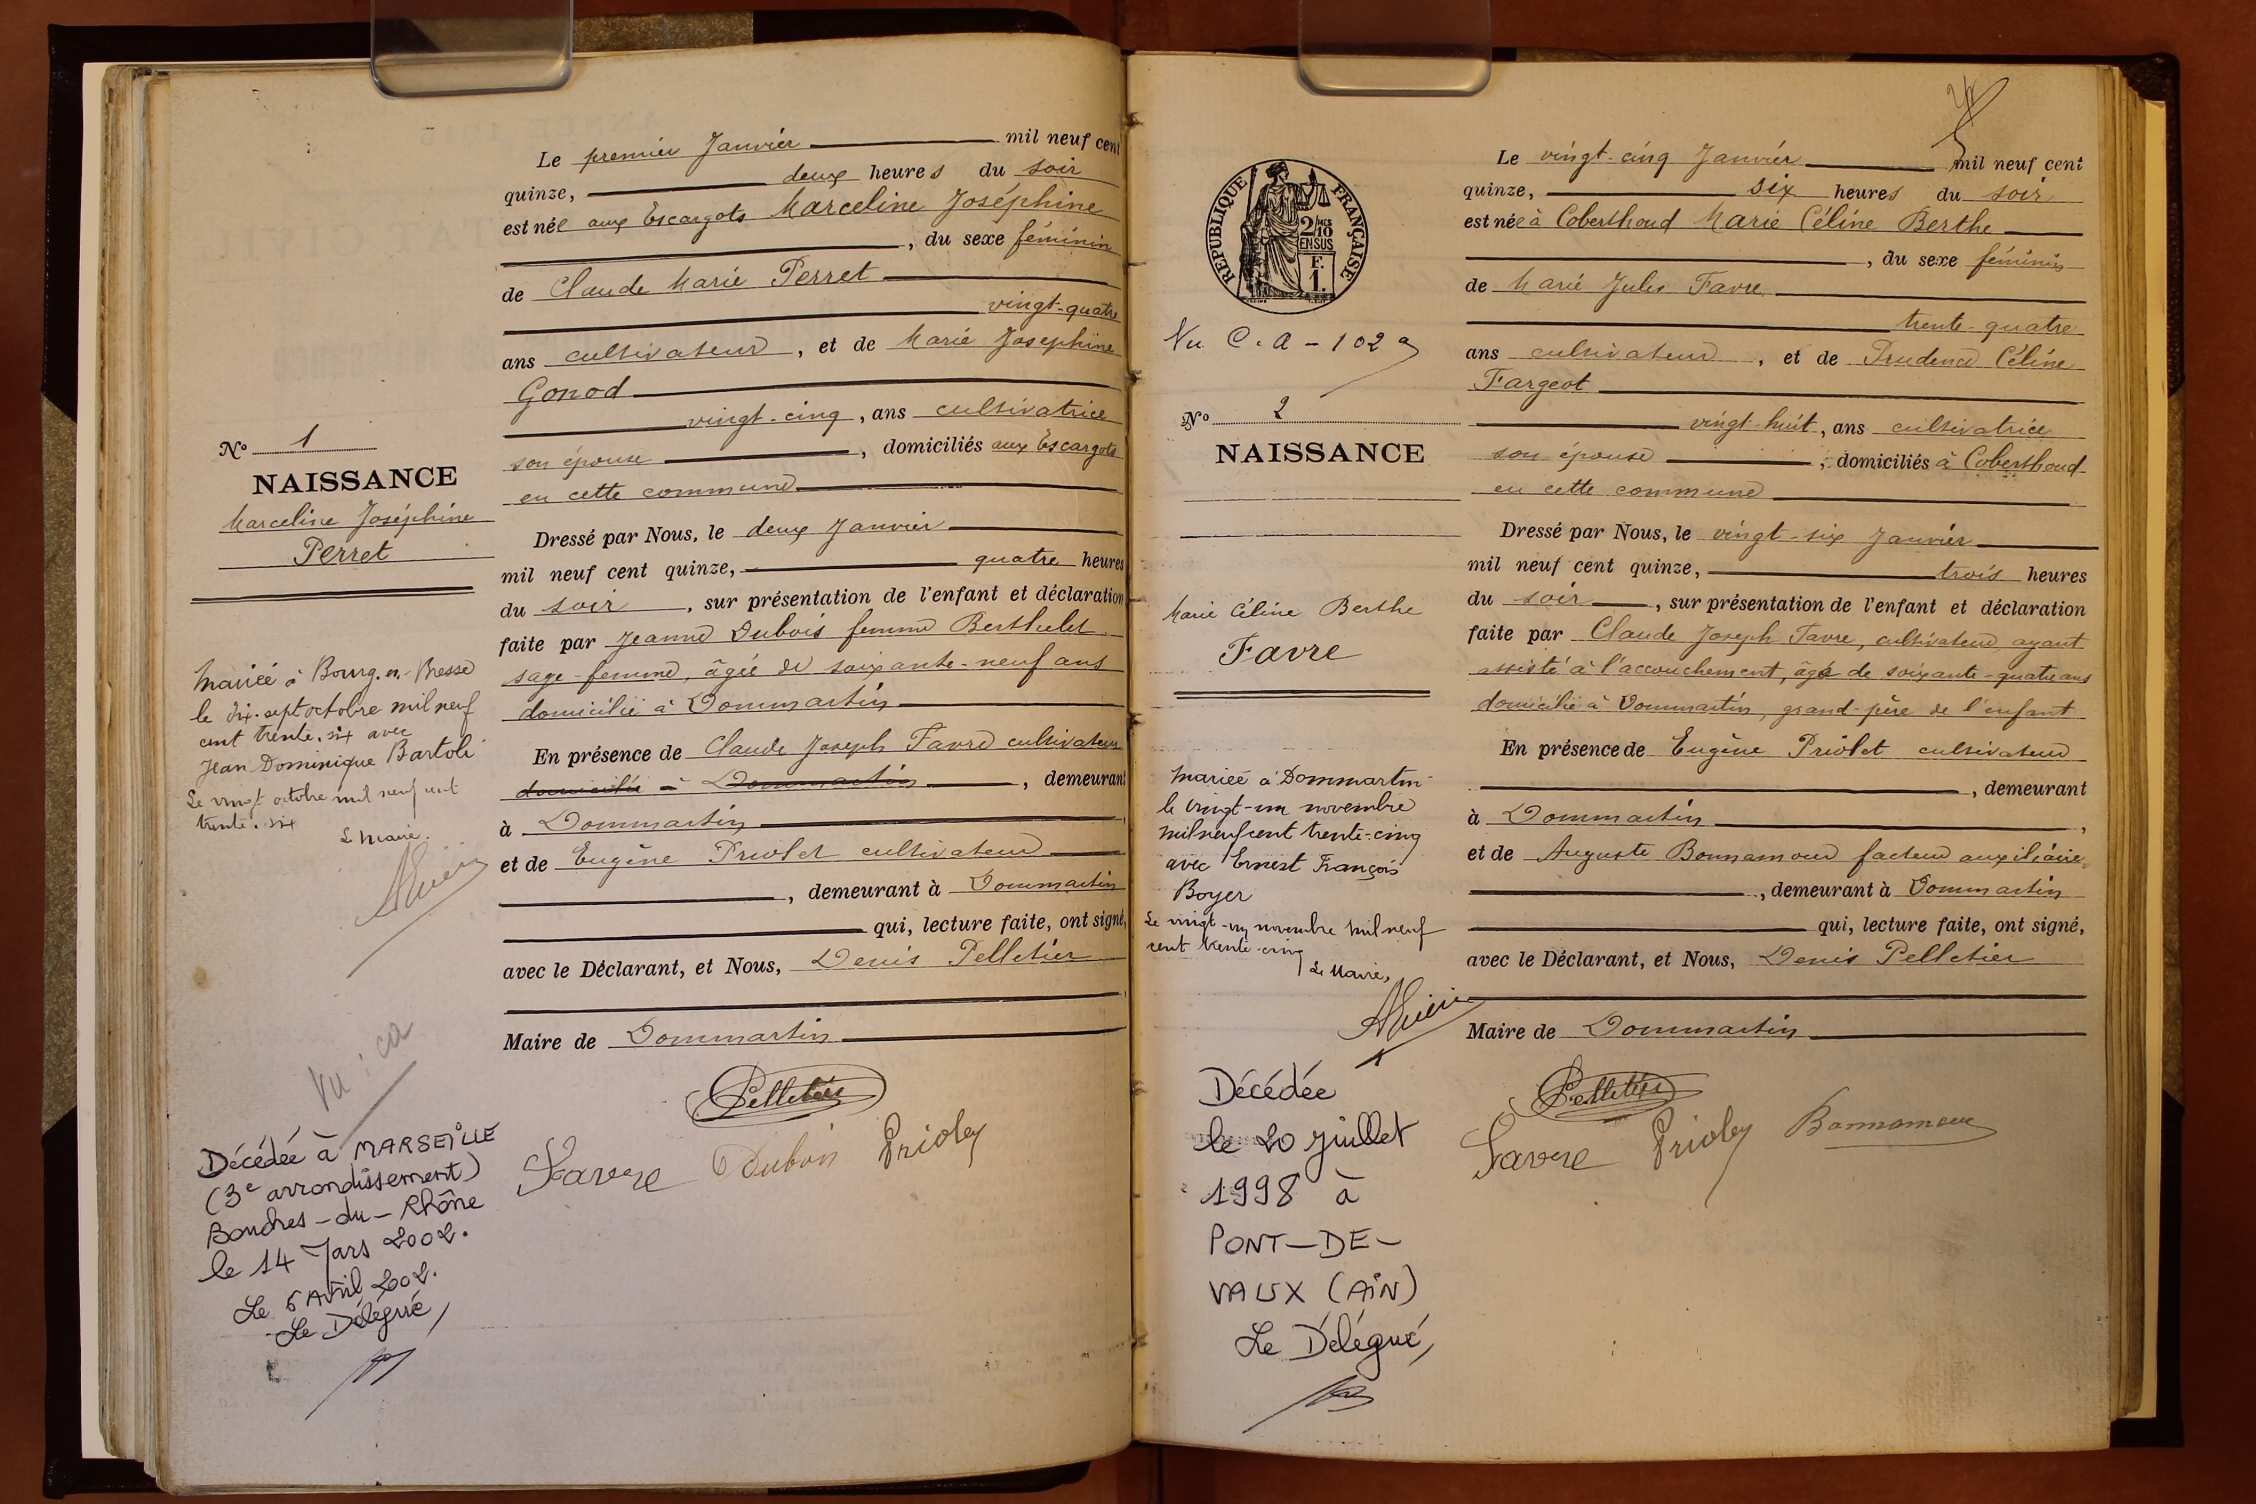 Le premier Janvier mil neuf cent
quinze, deux heures du soir
est née aux Escargots Marceline Joséphine
, du sexe féminin
de Claude Marie Perret
vingt-quatre
ans cultivateur, et de Marie Josephine
Gonod
vingt-cinq, ans cultivatrice
son épouse, domiciliés aux Escargots
en cette commune
Dressé par Nous, le deux Janvier
mil neuf cent quinze, quatre heures
du soir, sur présentation de l'enfant et déclaration
faite par Jeanne Dubois femme Berthelet
sage-femme, âgée de soixante-neuf ans
domicilié à Dommartin
En présence de Claude Joseph Favre cultivateur
domicilié à Dommartin, demeurant
à Dommartin,
et de Eugène Priolet cultivateur
, demeurant à Dommartin
qui, lecture faite, ont signé,
avec le Déclarant, et Nous, Denis Pelletier
Maire de Dommartin
Pelletier
Favre Dubois Prioley
No 1
NAISSANCE
Marceline Joséphine
Perret
Mariée à Bourg-en-Bresse
le dix-sept octobre mil neuf
cent trente-six avec
Jean Dominique Bartoli
Le vingt octobre mil neuf cent
trente-six
Le Maire.
Vu : ca
Décédée à MARSEILLE
(3e arrondissement)
Bouches-du-Rhône
le 14 Mars 2002.
Le 5 Avril 2002.
Le Délégué,
REPUBLIQUE FRANÇAISE
2/10
EN SUS
F.
1.
Vu C.A-102
No 2
NAISSANCE
Marie Céline Berthe
Favre
Mariée à Dommartin
le vingt-un novembre
mil neuf cent trente-cinq
avec Ernest François
Boyer
Le vingt-un novembre mil neuf
cent trente-cinq
Le Maire,
Décédée
le 20 juillet
1998 à
PONT-DE-
VAUX (AIN)
Le Délégué,
Le vingt-cinq Janvier mil neuf cent
quinze, six heures du soir
est née à Coberthoud Marie Céline Berthe
, du sexe féminin
de Marie Jules Favre
trente-quatre
ans cultivateur, et de Prudence Céline
Fargeot
vingt-huit, ans cultivatrice
son épouse, domiciliés à Coberthoud
en cette commune
Dressé par Nous, le vingt-six Janvier
mil neuf cent quinze, trois heures
du soir, sur présentation de l'enfant et déclaration
faite par Claude Joseph Favre, cultivateur ayant
assisté à l'accouchement, âgé de soixante-quatre ans
domicilié à Dommartin, grand-père de l'enfant
En présence de Eugène Priolet cultivateur
, demeurant
à Dommartin,
et de Auguste Bonnamour facteur auxiliaire
, demeurant à Dommartin
qui, lecture faite, ont signé,
avec le Déclarant, et Nous, Denis Pelletier
Maire de Dommartin
Pelletier
Favre Prioley Bonnamour